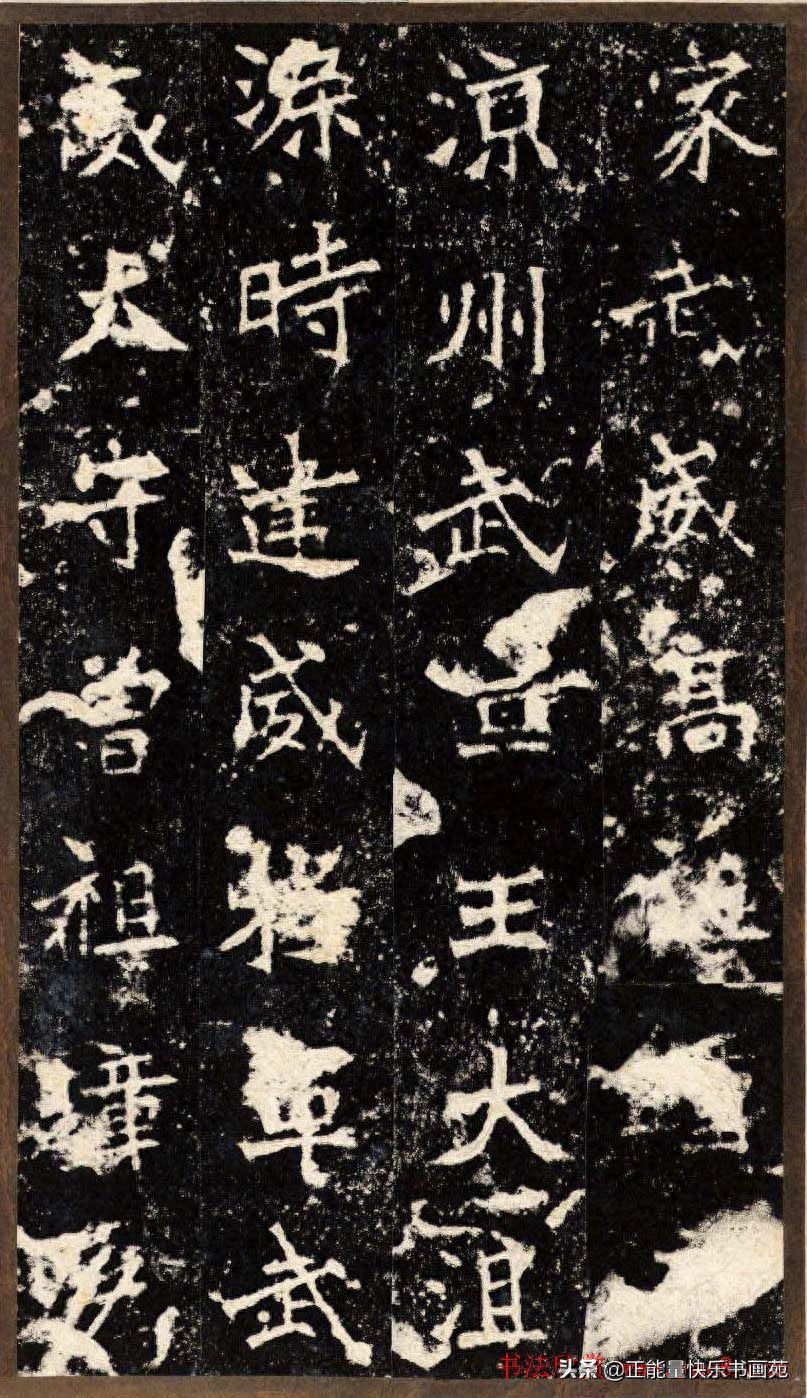 家走威高祖
涼州武宣王大沮
渠時建威將軍武
威太守曾祖璋
书法欣赏
头条@正能量快乐书画苑